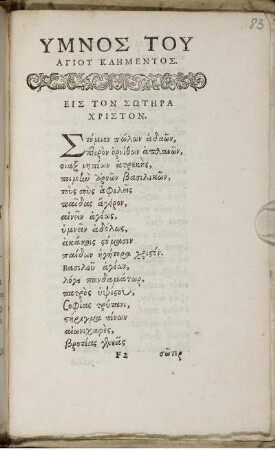 83
ΥΜΝΟΣ ΤΟΥ
ΑΓΙΟΥ ΚΛΗΜΕΝΤΟΣ.
ΕΙΣ ΤΟΝ ΣΩΤΗΡΑ
ΧΡΙΣΤΟΝ.
Στόμιον πώλων ἀδαῶν,
πτερὸν ὀρνίθων ἀπλανῶν,
οἴαξ νηπίων ἀτρεκὴς,
ποιμὴν ἀρνῶν βασιλικῶν,
τοὺς σοὺς ἀφελεῖς
παῖδας ἄγειρον,
αἰνεῖν ἁγίως,
ὑμνεῖν ἀδόλως,
ἀκάκοις στόμασιν
παίδων ἡγήτορα χριστόν.
Βασιλεῦ ἁγίων,
λόγε πανδαμάτωρ,
πατρὸς ὑψίστου,
Σοφίας πρύτανι,
στήριγμα πόνων
αἰωνιχαρὲς,
βροτέας γενεᾶς
F2 σῶτερ